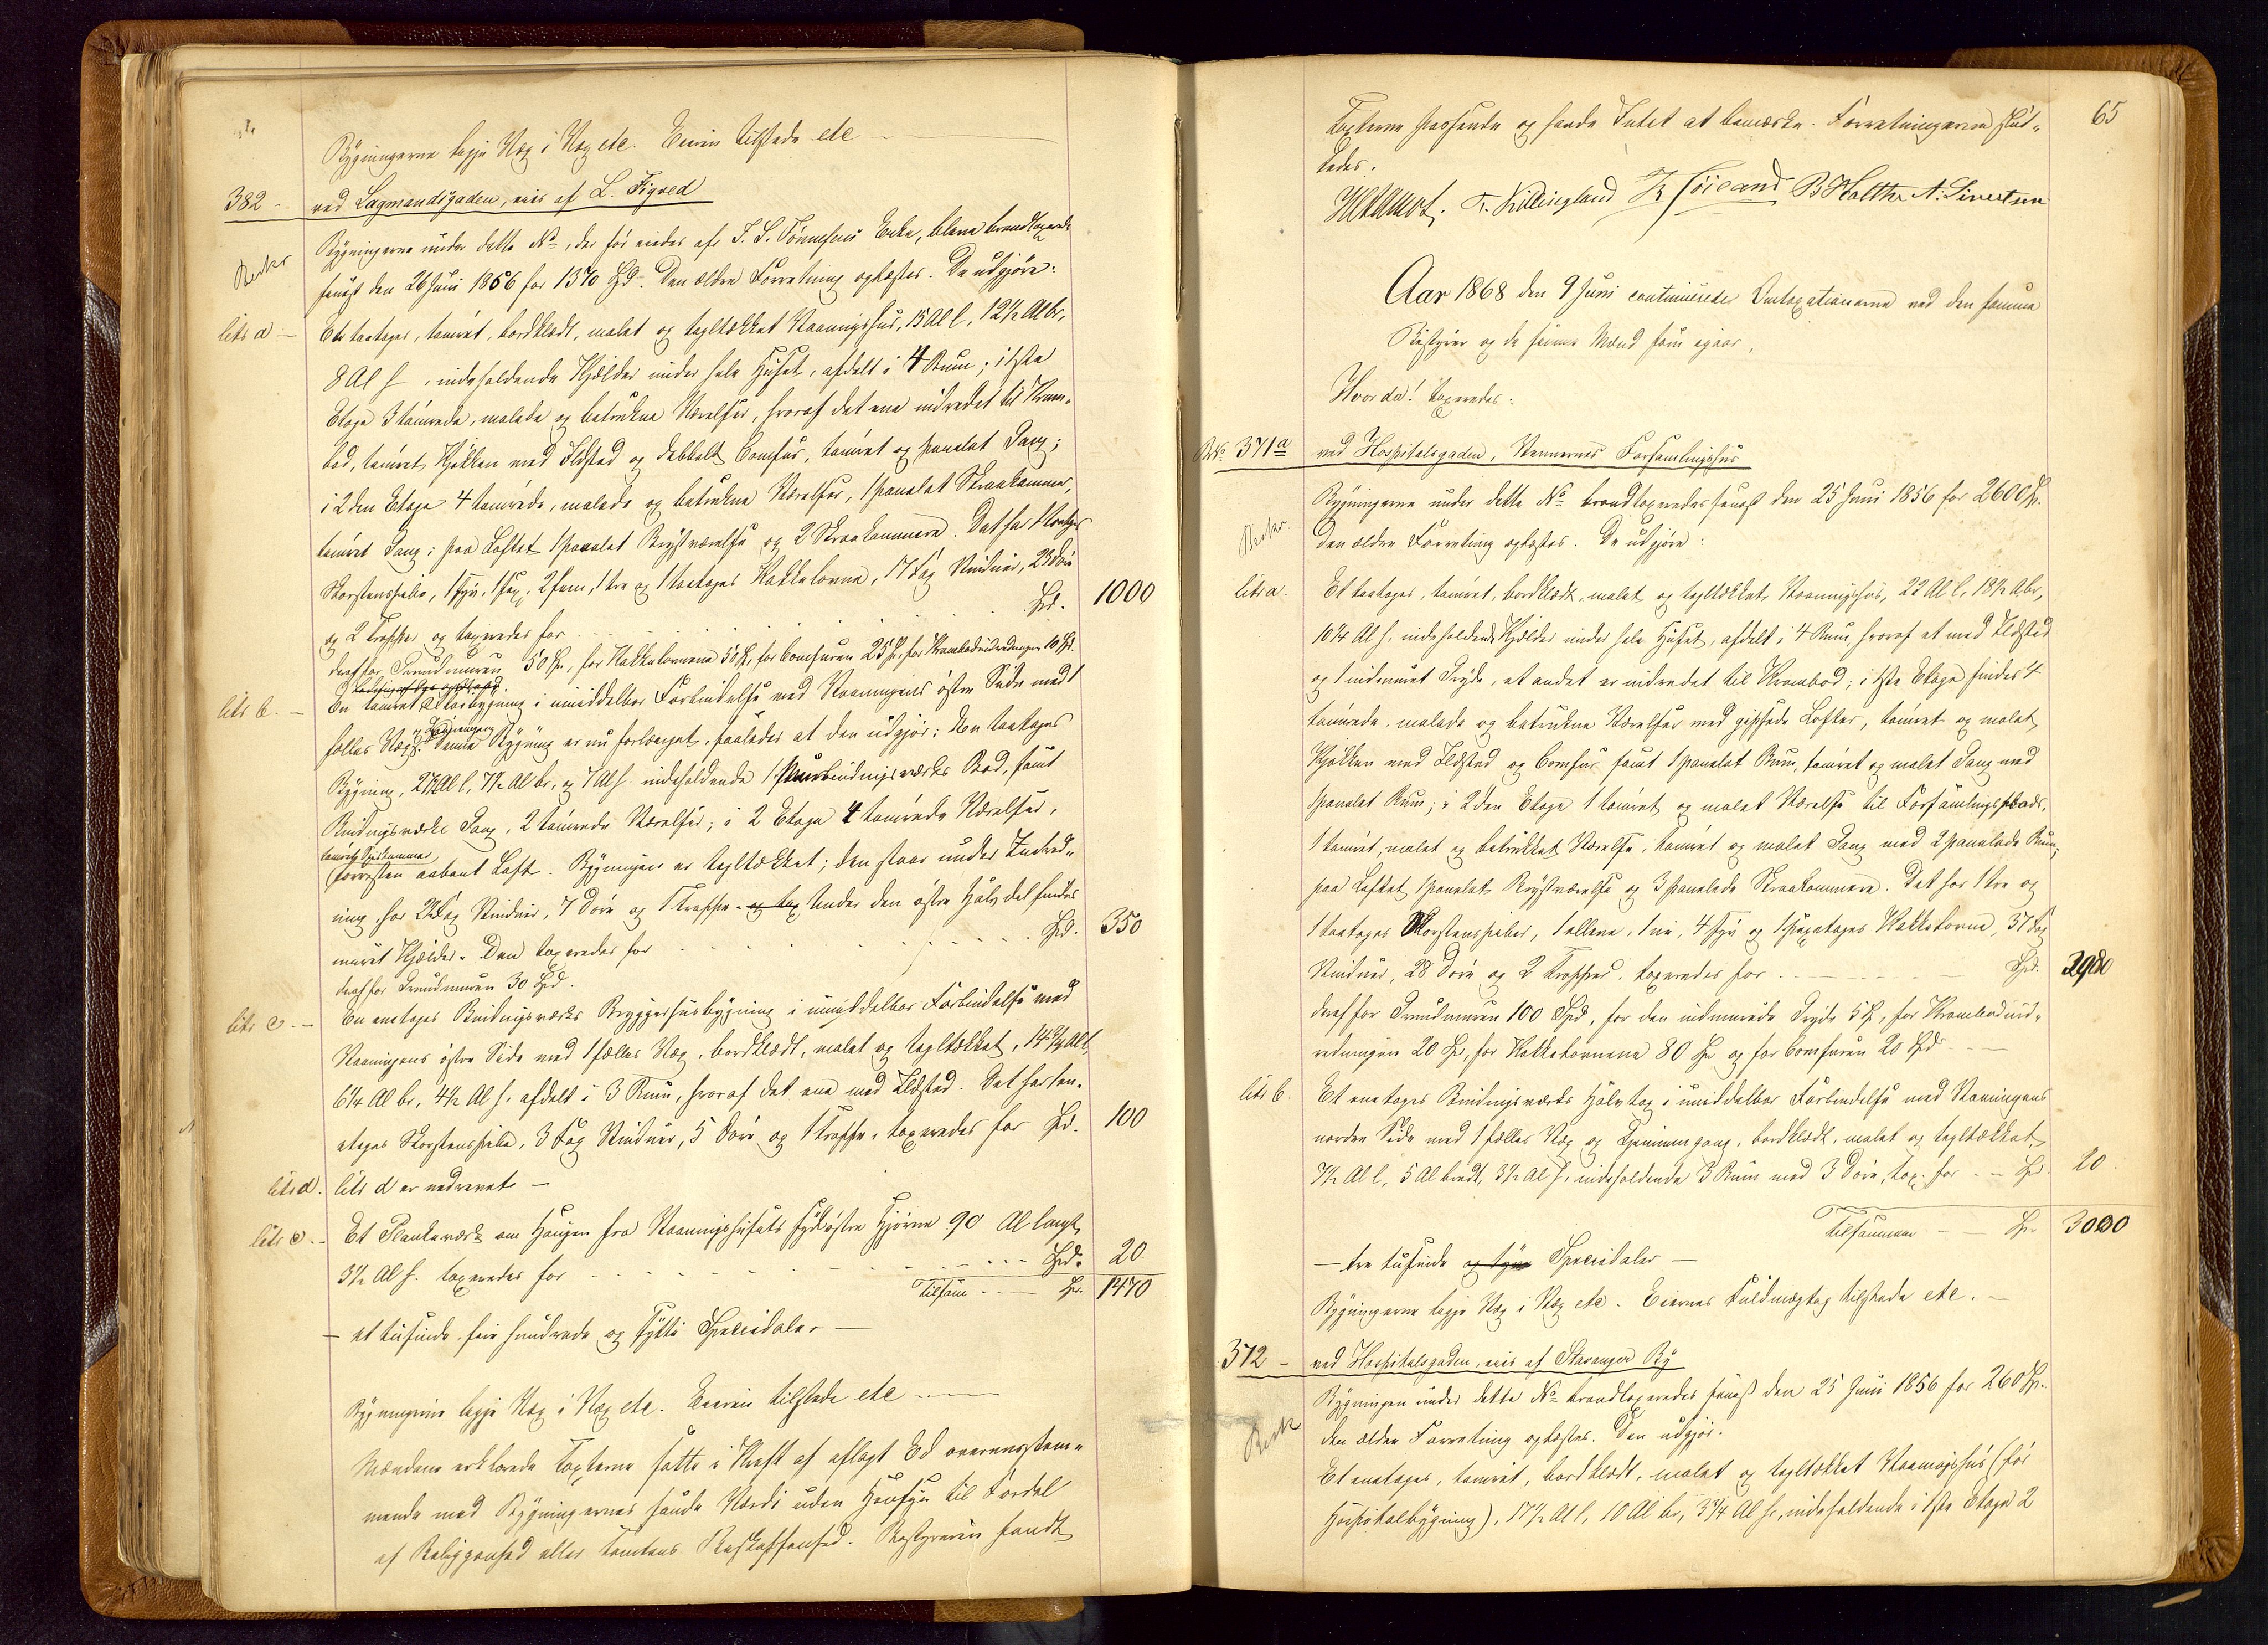 Bygningerne ligge Væg i Væg etc. Eieren tilstede etc
382 - ved Lagmandsgaden, eies af L. Figved
Bygningerne under dette No, der før eiedes af T. S. Tønnesens Enke, bleve brandtaxerede
Beskr senest den 26 Juni 1856 for 1370 Spd. Den ældre Forretning oplæstes. De udgjøre:
litr a - Et toetages, tømret, bordklædt, malet og tegltækket Vaaningshus, 15 Al l, 12 1/2 Al br,
8 Al h, indeholdende Kjælder under hele Huset, afdelt i 4 Rum; i 1ste
Etage 3 tømrede, malede og betrukne Værelser, hvoraf det ene indredet til Kram-
bod, tømret Kjøkken med Ildsted og dobbelt Comfur, tømret og panelet Gang;
i 2den Etage 4 tømrede, malede og betrukne Værelser, 1 panelet Skraakammer,
tømret Gang; paa Loftet 1 panelet Qvistværelse og 2 Skraakammere. Det har 1 toetages
Skorstenspibe, 1 syv, 1 sex, 2 fem, 1 tre og 1 toetages Kakkelovne, 17 Fag Vinduer, 23 Døre
og 2 Trapper og taxeredes for Spd. 1000
deraf for Grundmuren 50 Spd, for Kakkelovnene 50 Spd, for Comfuren 25 Spd, for Krambodindredningen 10 Spd.
litr b. - En tømret Bagbygning i umiddelbar Forbindelse med Vaaningens østre Side med 1
fælles Væg. Denne Bygning er nu forlænget, saaledes at den udgjør: En toetages
Bygning, 21 1/2 Al l, 7 1/2 Al br, og 7 Al h. indeholdende 1 Bindingsværks Bod, samt
Bindingsværks Gang, 2 tømrede Værelser; i 2 Etage 4 tømrede Værelser,
tømret Spiskammer
forresten aabent Loft. Bygningen er tegltækket; den staar under Indred-
ning, har 21 Fag Vinduer, 7 Døre og 1 Trappe. og tax Under den østre Halvdel findes
muret Kjælder. Den taxeredes for Spd. 350
deraf for Grundmuren 30 Spd.
litr c. - En enetages Bindingsværks Bryggerhusbygning i umiddelbar Forbindelse med
Vaaningens østre Side med 1 fælles Væg, bordklædt, malet og tegltækket, 14 3/4 Al l,
6 1/4 Al br, 4 1/2 Al h, afdelt i 3 Rum, hvoraf det ene med Ildsted. Det har 1 en-
etages Skorstenspibe, 3 Fag Vinduer, 5 Døre og 1 Trappe, taxeredes for Spd. 100
litr d. litr d er nedrevet -
litr e. - Et Plankeværk om Haugen fra Vaaningshusets sydøstre Hjørne 90 Al langt,
3 1/2 Al h. taxeredes for Spd. 20.
Tilsam - Spd. 1470
- et tusinde fire hundrede og sytti Speciedaler -
Bygningerne ligge Væg i Væg etc. Eieren tilstede etc
Mændene erklærede Taxterne satte i Kraft af aflagt Ed overensstem-
mende med Bygningernes sande Værdi uden Hensyn til Fordel
af Beliggenhed eller Tomtens Beskaffenhed. Bestyreren fandt
65
Taxterne passende og havde Intet at bemærke. Forretningerne slut-
tedes.
T. Killingland B Holthe A. Sivertsen
Aar 1868 den 9 Juni continueredes Omtaxationerne ved den samme
Bestyrer og de samme Mænd som igaar,
Hvorda! taxeredes:
B.No. 371a ved Hospitalsgaden, Vennernes Forsamlingshus
Bygningerne under dette No brandtaxeredes senest den 25 Juni 1856 for 2600 Spd.
Beskr. Den ældre Forretning oplæstes. De udgjøre:
litr a. Et toetages, tømret, bordklædt, malet og tegltækket Vaaningshus, 22 Al l, 18 1/2 Al br,
10 1/4 Al h, indeholdende Kjælder under hele Huset, afdelt i 4 Rum, hvoraf et med Ildsted
og 1 indmuret Gryde, et andet er indredet til Krambod; i 1ste Etage findes 4
tømrede, malede og betrukne Værelser med gipsede Lofter, tømret og malet
Kjøkken med Ildsted og Comfur samt 1 panelet Rum, tømret og malet Gang med
1 panelet Rum; i 2den Etage 1 tømret og malet Værelse til Forsamlingsplads,
1 tømret, malet og betrukket Værelse, tømret og malet Gang med 2 panelede Rum;
paa Loftet 1 panelet Qvistværelse og 3 panelede Skraakammere. Det har 1 tre og
1 toetages Skorstenspiber, 1 elleve, 1 ni, 4 syv og 1 sexetages Kakkelovne, 37 Fag
Vinduer, 28 Døre og 2 Trapper, taxeredes for Spd. 2980
deraf for Grundmuren 100 Spd, for den indmurede Gryde 5 Spd, for Krambodind-
redningen 20 Spd, for Kakkelovnene 80 Spd og for Comfuren 20 Spd
litr b. Et enetages Bindingsværks Halvtag i umiddelbar Forbindelse med Vaaningens
nordre Side med 1 fælles Væg og Gjennemgang, bordklædt, malet og tegltækket,
7 1/2 Al l, 5 Al bredt, 3 1/2 Al h, indeholdende 3 Rum med 3 Døre, tax. for - - Spd. 20
Tilsammen - - Spd 3000
- tre tusinde og tyve Speciedaler -
Bygningerne ligge Væg i Væg etc. Eiernes Fuldmægtig tilstede etc. -
372 - ved Hospitalsgaden, eies af Stavanger By
Bygningen under dette No brandtaxeredes senest den 25 Juni 1856 for 260 Spd.
Beskr Den ældre Forretning oplæstes. Den udgjør:
Et enetages, tømret, bordklædt, malet og tegltækket Vaaningshus (før
Hospitalbygning), 17 1/2 Al l, 10 Al br, 3 3/4 Al h, indeholdende i 1ste Etage 2